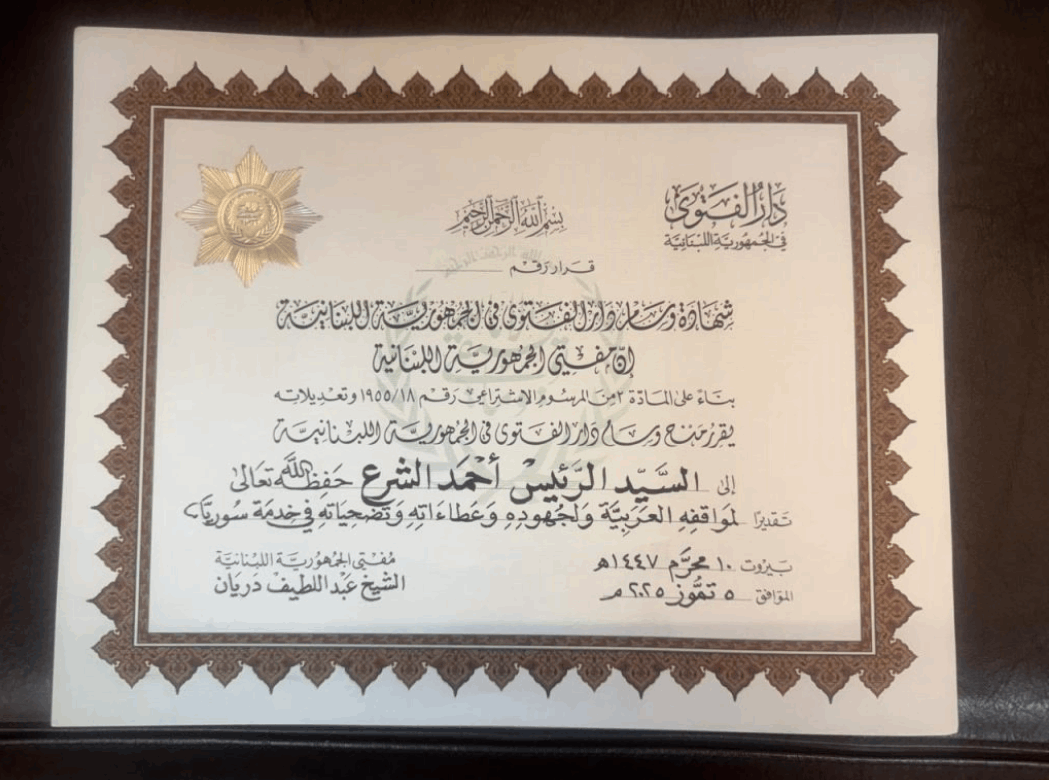 دار الفتوى
في الجمهورية اللبنانية
بسم الله الرحمن الرحيم
قرار رقم
شهادة وسام دار الفتوى في الجمهورية اللبنانية
إن مفتي الجمهورية اللبنانية
بناء على المادة ٢ من المرسوم الاشتراعي رقم ١٩٥٥/١٨ وتعديلاته
يقرر منح وسام دار الفتوى في الجمهورية اللبنانية
إلى السَّيِّد الرَّئيس أحْمَد الشرع حَفِظَهُ الله تعَالى
تقديرًا لمَوَاقفِهِ العَرَبيَّة وَلجُهُودِهِ وَعَطاءَاتِهِ وَتضْحِيَاتِهِ فِي خِدمَة سُوريَّا
بيروت ١٠ محَرَّم ١٤٤٧هـ
الموافق ٥ تمُّوز ٢٠٢٥م
مُفتي الجُمهُوريَّة اللبْنَانيَّة
الشيخ عَبْد اللطيف دَريَان